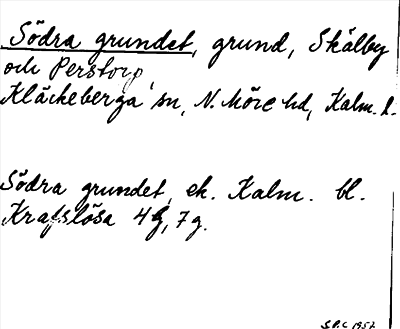 Södra grundet, grund, Skälby
och Perstorp
Kläckeberga sn, N. Möre hd, Kalm. l.
Södra grundet, ek. Kalm. bl.
Krafslösa 4 g, 7 g.
S.P.C 1957